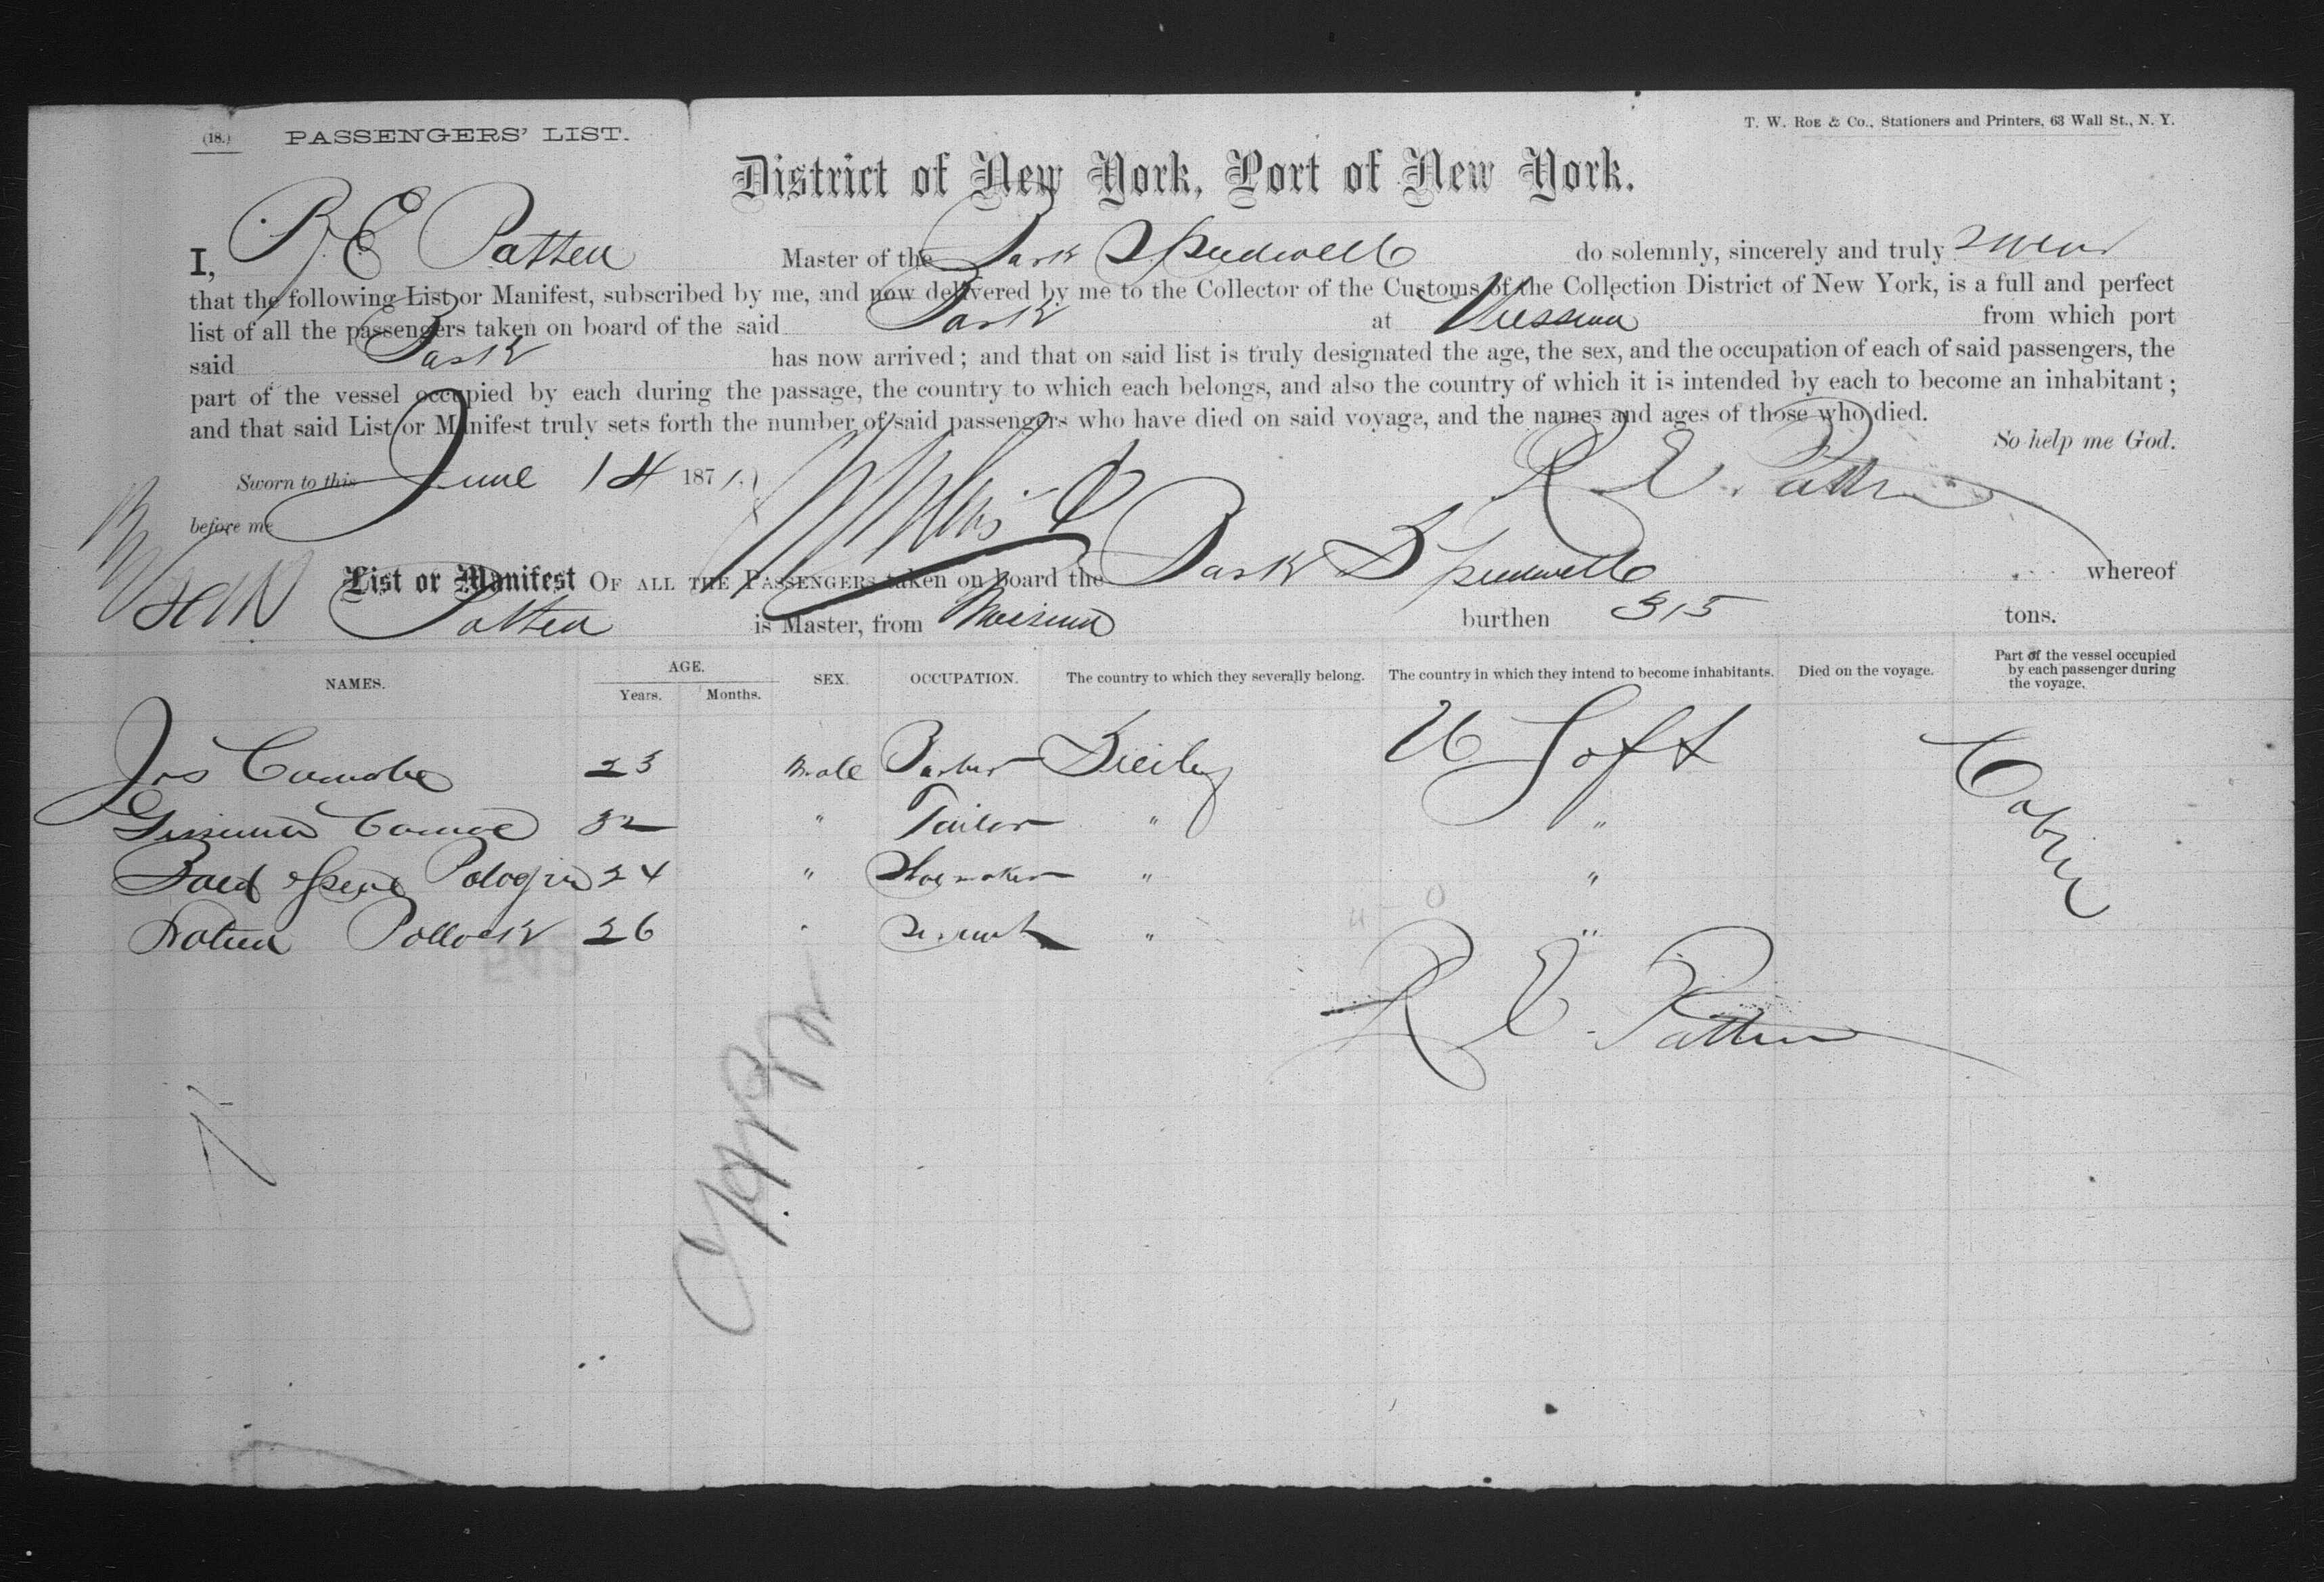 (18.) PASSENGERS' LIST.
T. W. Roe & Co., Stationers and Printers, 63 Wall St., N. Y.
District of New York, Port of New York.
I, R E Patten Master of the Bark Speedwell do solemnly, sincerely and truly swear
that the following List or Manifest, subscribed by me, and now delivered by me to the Collector of the Customs of the Collection District of New York, is a full and perfect
list of all the passengers taken on board of the said Bark at Messina from which port
said Bark has now arrived; and that on said list is truly designated the age, the sex, and the occupation of each of said passengers, the
part of the vessel occupied by each during the passage, the country to which each belongs, and also the country of which it is intended by each to become an inhabitant;
and that said List or Manifest truly sets forth the number of said passengers who have died on said voyage, and the names and ages of those who died.
So help me God.
Sworn to this June 14 1871. R E. Patten
before me
List or Manifest OF ALL THE PASSENGERS taken on board the Bark Speedwell whereof
Patten is Master, from Messina burthen 315 tons.
NAMES. AGE. Years. Months. SEX. OCCUPATION. The country to which they severally belong. The country in which they intend to become inhabitants. Died on the voyage. Part of the vessel occupied by each passenger during the voyage.
Jos 23 Male Barber Sicily U S of A Cabin
32 " Tailor " "
24 " Shoemaker " "
Pollock 26 " " "
R E. Patten